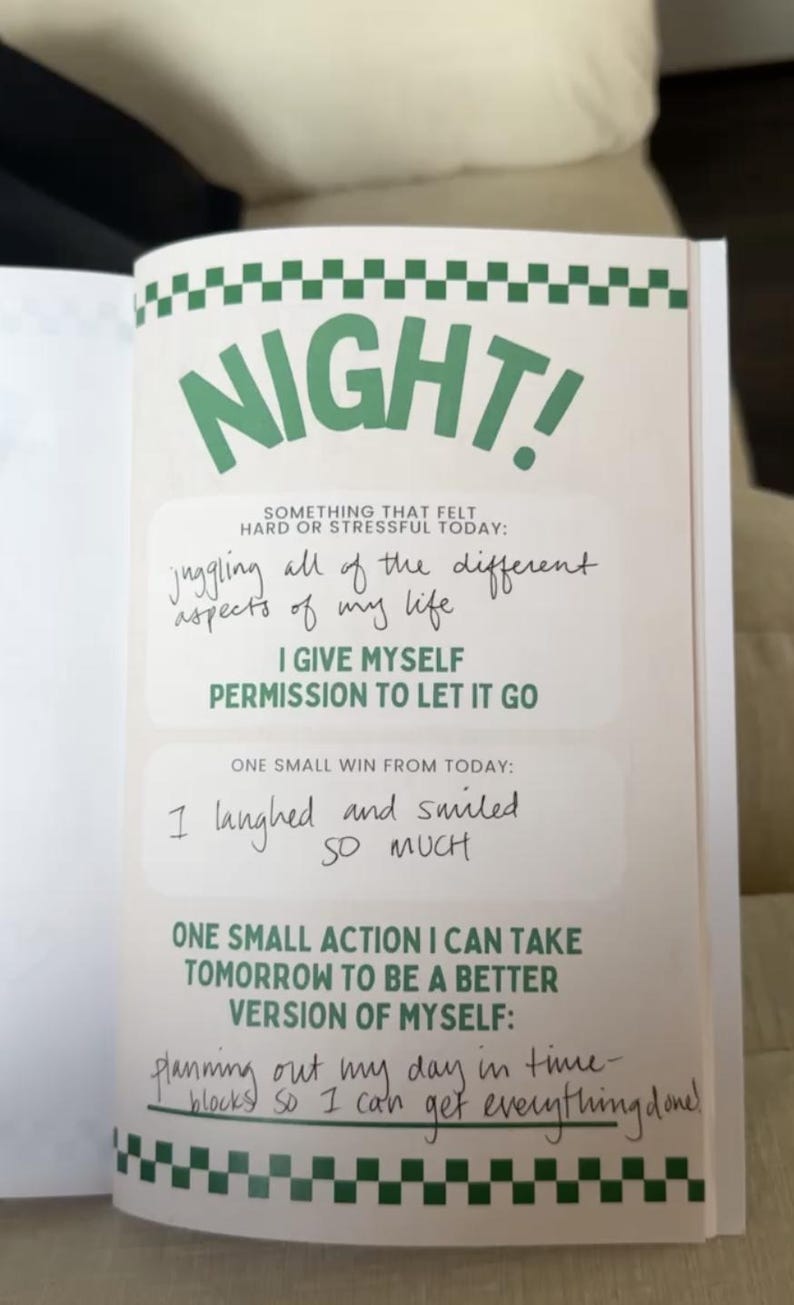 NIGHT!
SOMETHING THAT FELT
HARD OR STRESSFUL TODAY:
juggling all of the different
aspects of my life
I GIVE MYSELF
PERMISSION TO LET IT GO
ONE SMALL WIN FROM TODAY:
I laughed and smiled
SO MUCH
ONE SMALL ACTION I CAN TAKE
TOMORROW TO BE A BETTER
VERSION OF MYSELF:
planning out my day in time-
blocks so I can get everything done!